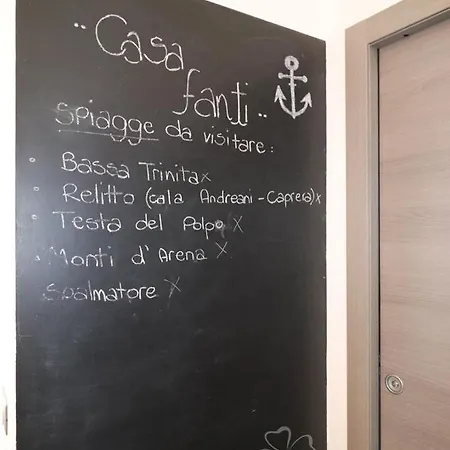 .. Casa
fanti ..
Spiagge da visitare :
• Bassa Trinita x
• Relitto (cala Andreani - Caprera) x
• Testa del Polpo x
• Monti d' Arena x
Spalmatore x